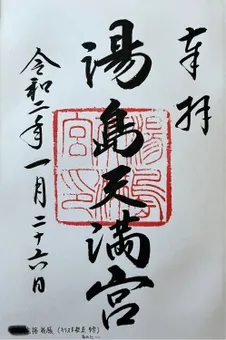 奉拝
湯島天満宮
令和二年一月二十六日